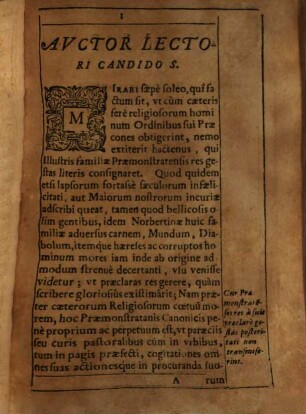 1
AVCTOR LECTO-
RI CANDIDO S.
MIRARI sæpè soleo, quî fa-
ctum sit, vt cùm cæteris
ferè religiosorum homi
num Ordinibus sui Præ
cones obtigerint, nemo
extiterit hactenus, qui
Illustris familiæ Præmonstratensis res ge-
stas literis consignaret. Quod quidem
etsi lapsorum fortasse sæculorum infæli-
citati, aut Maiorum nostrorum incuriæ
adscribi queat, tamen quod bellicosis o-
lim gentibus, idem Norbertinæ huic fa-
miliæ aduersus carnem, Mundum, Dia-
bolum, itemque hæreses ac corruptos ho
minum mores iam inde ab origine ad
modum strenuè decertanti, vsu venisse
videtur; vt præclaras res gerere, quàm
scribere gloriosius existimârit; Nam præ-
ter cæterorum Religiosorum cœtuũ mo-
rem, hoc Præmonstratensis Canonicis pe-
nè proprium ac perpetuum est, vt præcius
seu curis pastoralibus cùm in vrbibus,
tum in pagis præfecti, cogitationes om-
nes suas actionesque in procuranda suo-
A
rum
Cur Præ
monstrate-
ses res à se
præclarè ge-
stas posteri-
tati non
transmise-
rint.